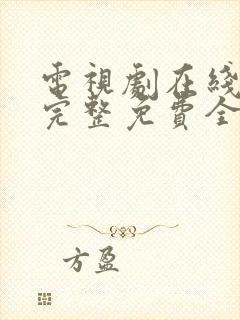 電視劇在綫
完整免費全
方盈